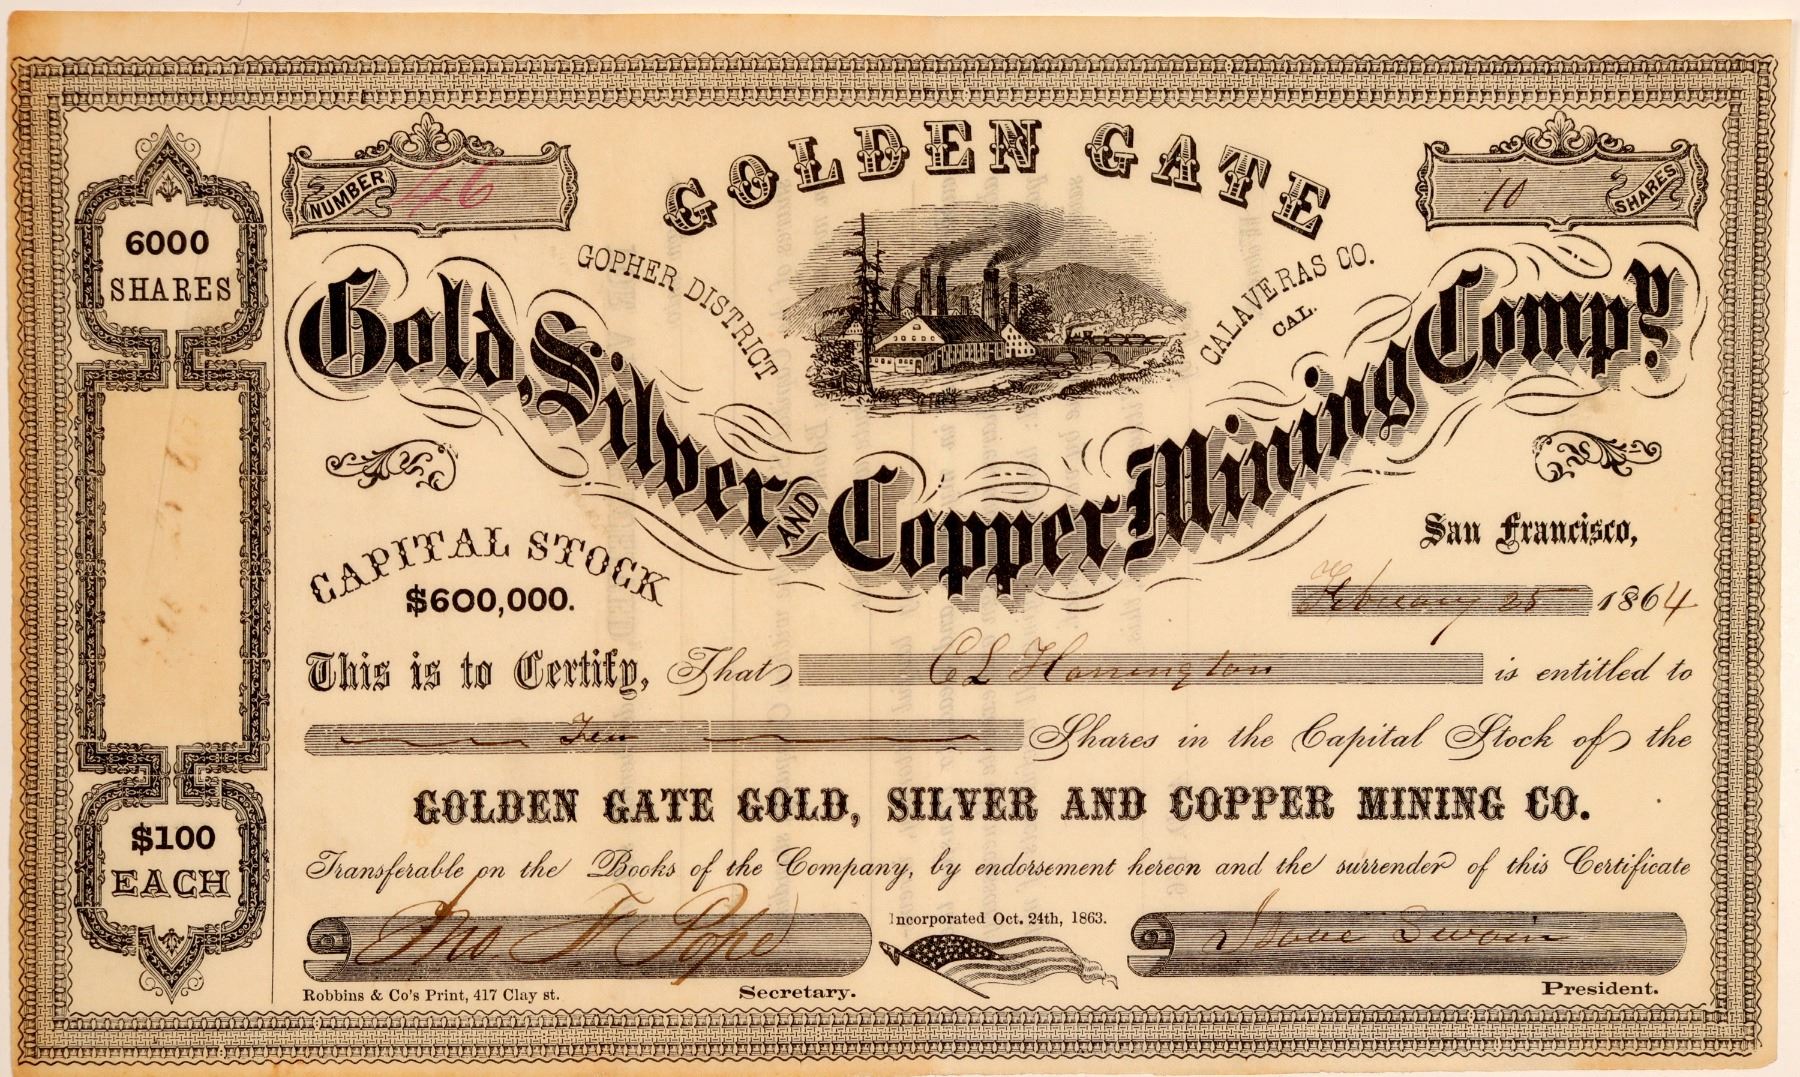 NUMBER 46
10 SHARES
GOLDEN GATE
GOPHER DISTRICT
CALAVERAS CO.
CAL.
Gold, Silver AND Copper Mining Compy.
6000
SHARES
$100
EACH
CAPITAL STOCK
$600,000.
San Francisco,
February 25 1864
This is to Certify, That C L Harrington is entitled to
Ten Shares in the Capital Stock of the
GOLDEN GATE GOLD, SILVER AND COPPER MINING CO.
Transferable on the Books of the Company, by endorsement hereon and the surrender of this Certificate
Incorporated Oct. 24th, 1863.
Jno. F Pope
Isaac Swain
Robbins & Co's Print, 417 Clay st.
Secretary.
President.